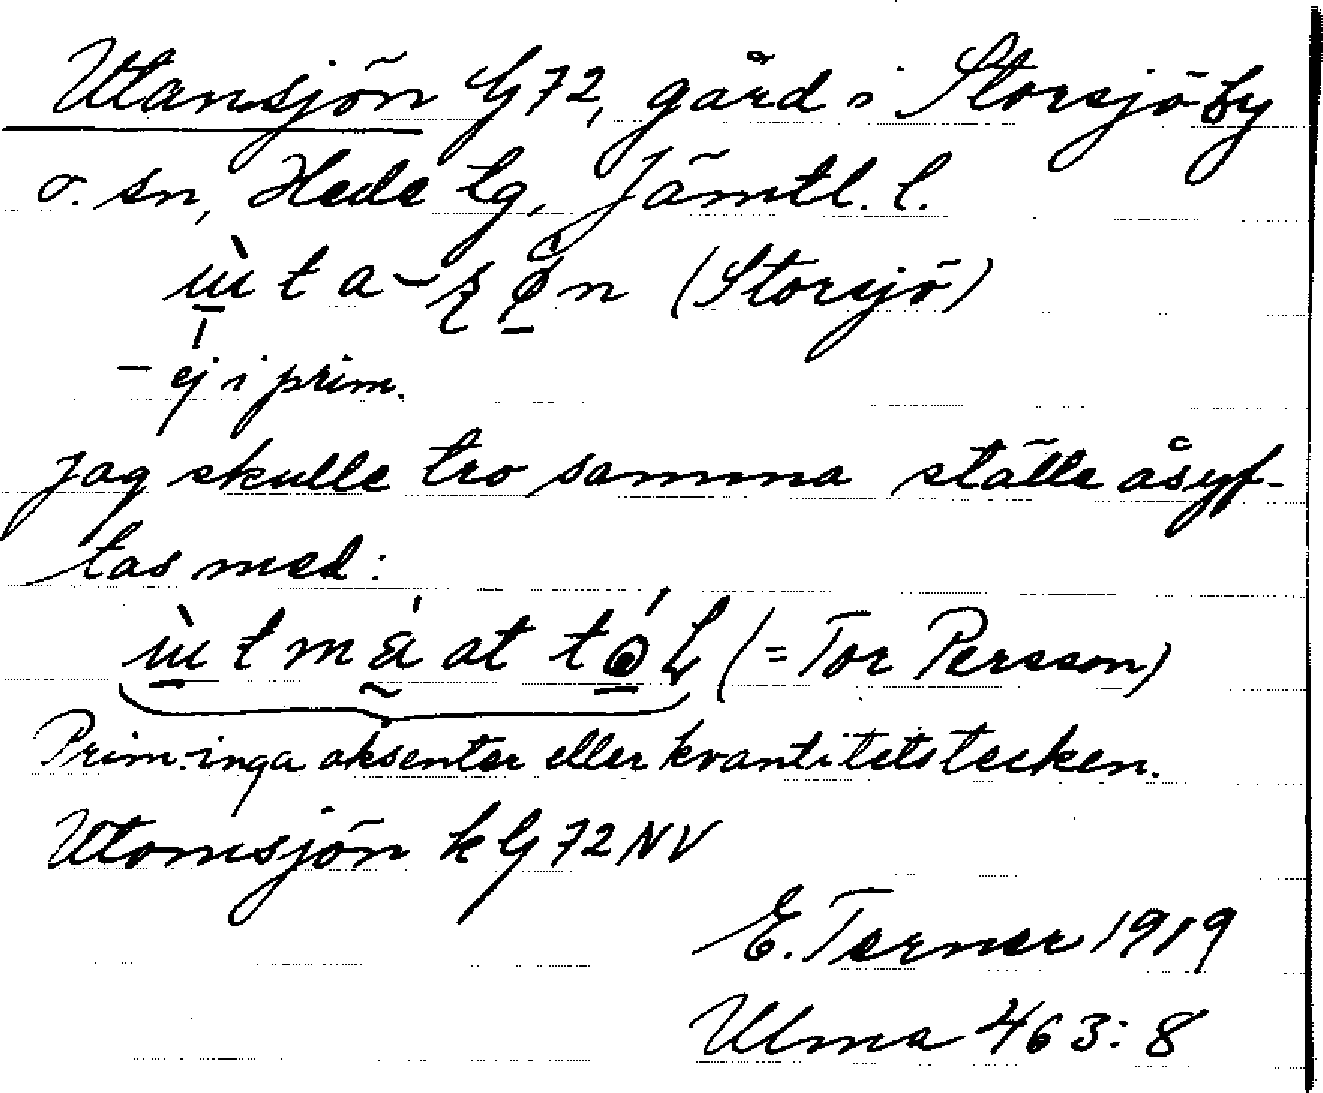 Utansjön G 72, gård i Storsjö by
o. sn, Hede tg, Jämtl. l.
(Storsjö)
– ej i prim.
Jag skulle tro samma ställe åsyf-
tas med:
(= Tor Persson)
Prim. inga aksenter eller kvantitetstecken.
Utomsjön k G 72 NV
E. Terner 1919
Ulma 463:8